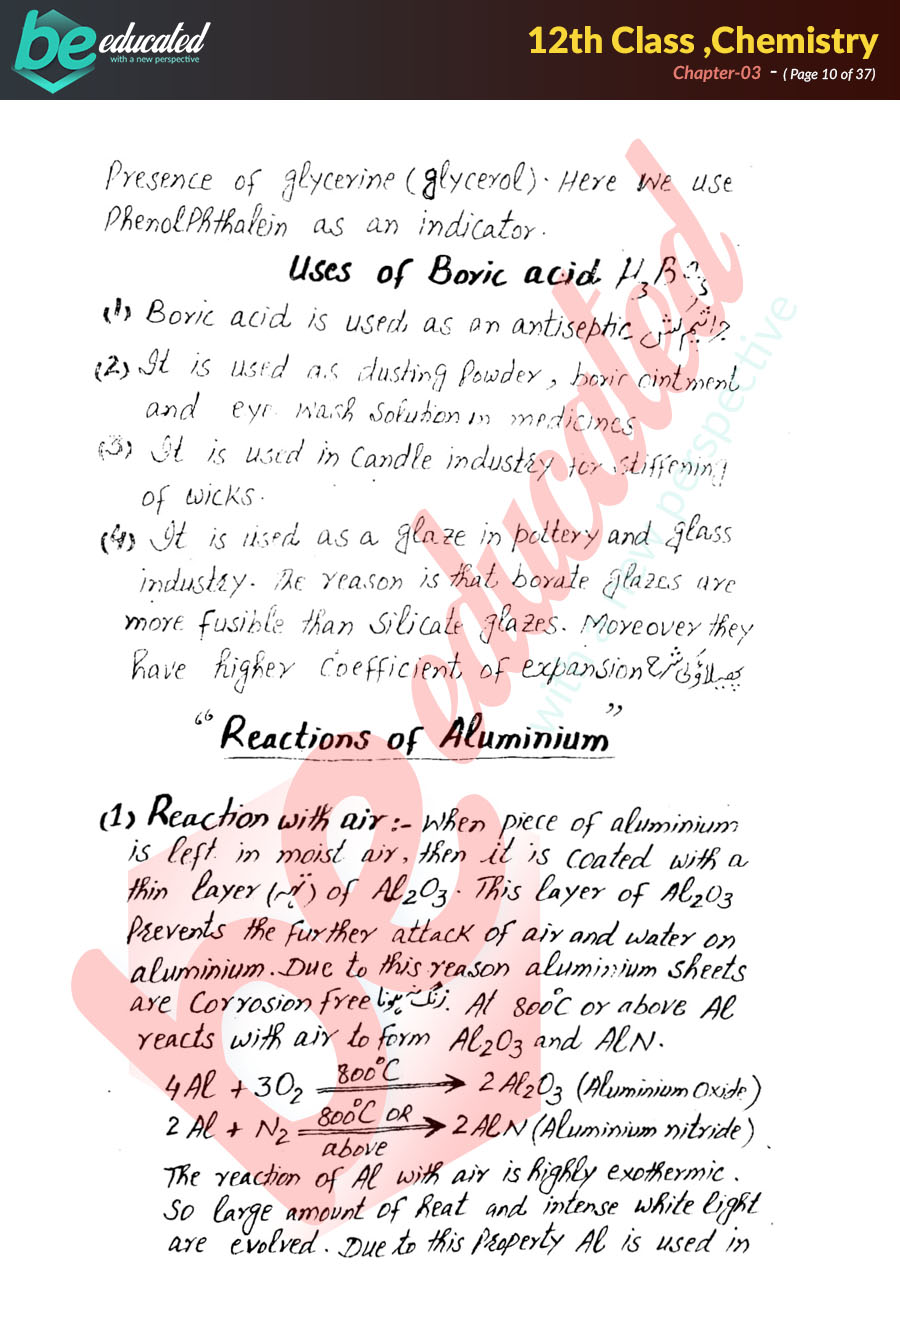 be educated
with a new perspective
12th Class ,Chemistry
Chapter-03 - ( Page 10 of 37)
Presence of glycerine (glycerol). Here we use
PhenolPhthalein as an indicator.
Uses of Boric acid H3BO3
(1) Boric acid is used as an antiseptic جراثیم کش
(2) It is used as dusting Powder, boric ointment
and eye wash solution in medicines
(3) It is used in Candle industry for stiffening
of wicks.
(4) It is used as a glaze in pottery and glass
industry. The reason is that borate glazes are
more fusible than Silicate glazes. Moreover they
have higher coefficient of expansion
"Reactions of Aluminium"
(1) Reaction with air :- When piece of aluminium
is left in moist air, then it is coated with a
thin layer (تہہ) of Al2O3. This layer of Al2O3
Prevents the further attack of air and water on
aluminium. Due to this reason aluminium sheets
are Corrosion free. At 800°C or above Al
reacts with air to form Al2O3 and AlN.
4Al + 3O2 800°C → 2Al2O3 (Aluminium Oxide)
2Al + N2 800°C OR above → 2AlN (Aluminium nitride)
The reaction of Al with air is highly exothermic.
So large amount of heat and intense white light
are evolved. Due to this Property Al is used in
be educated
with a new perspective